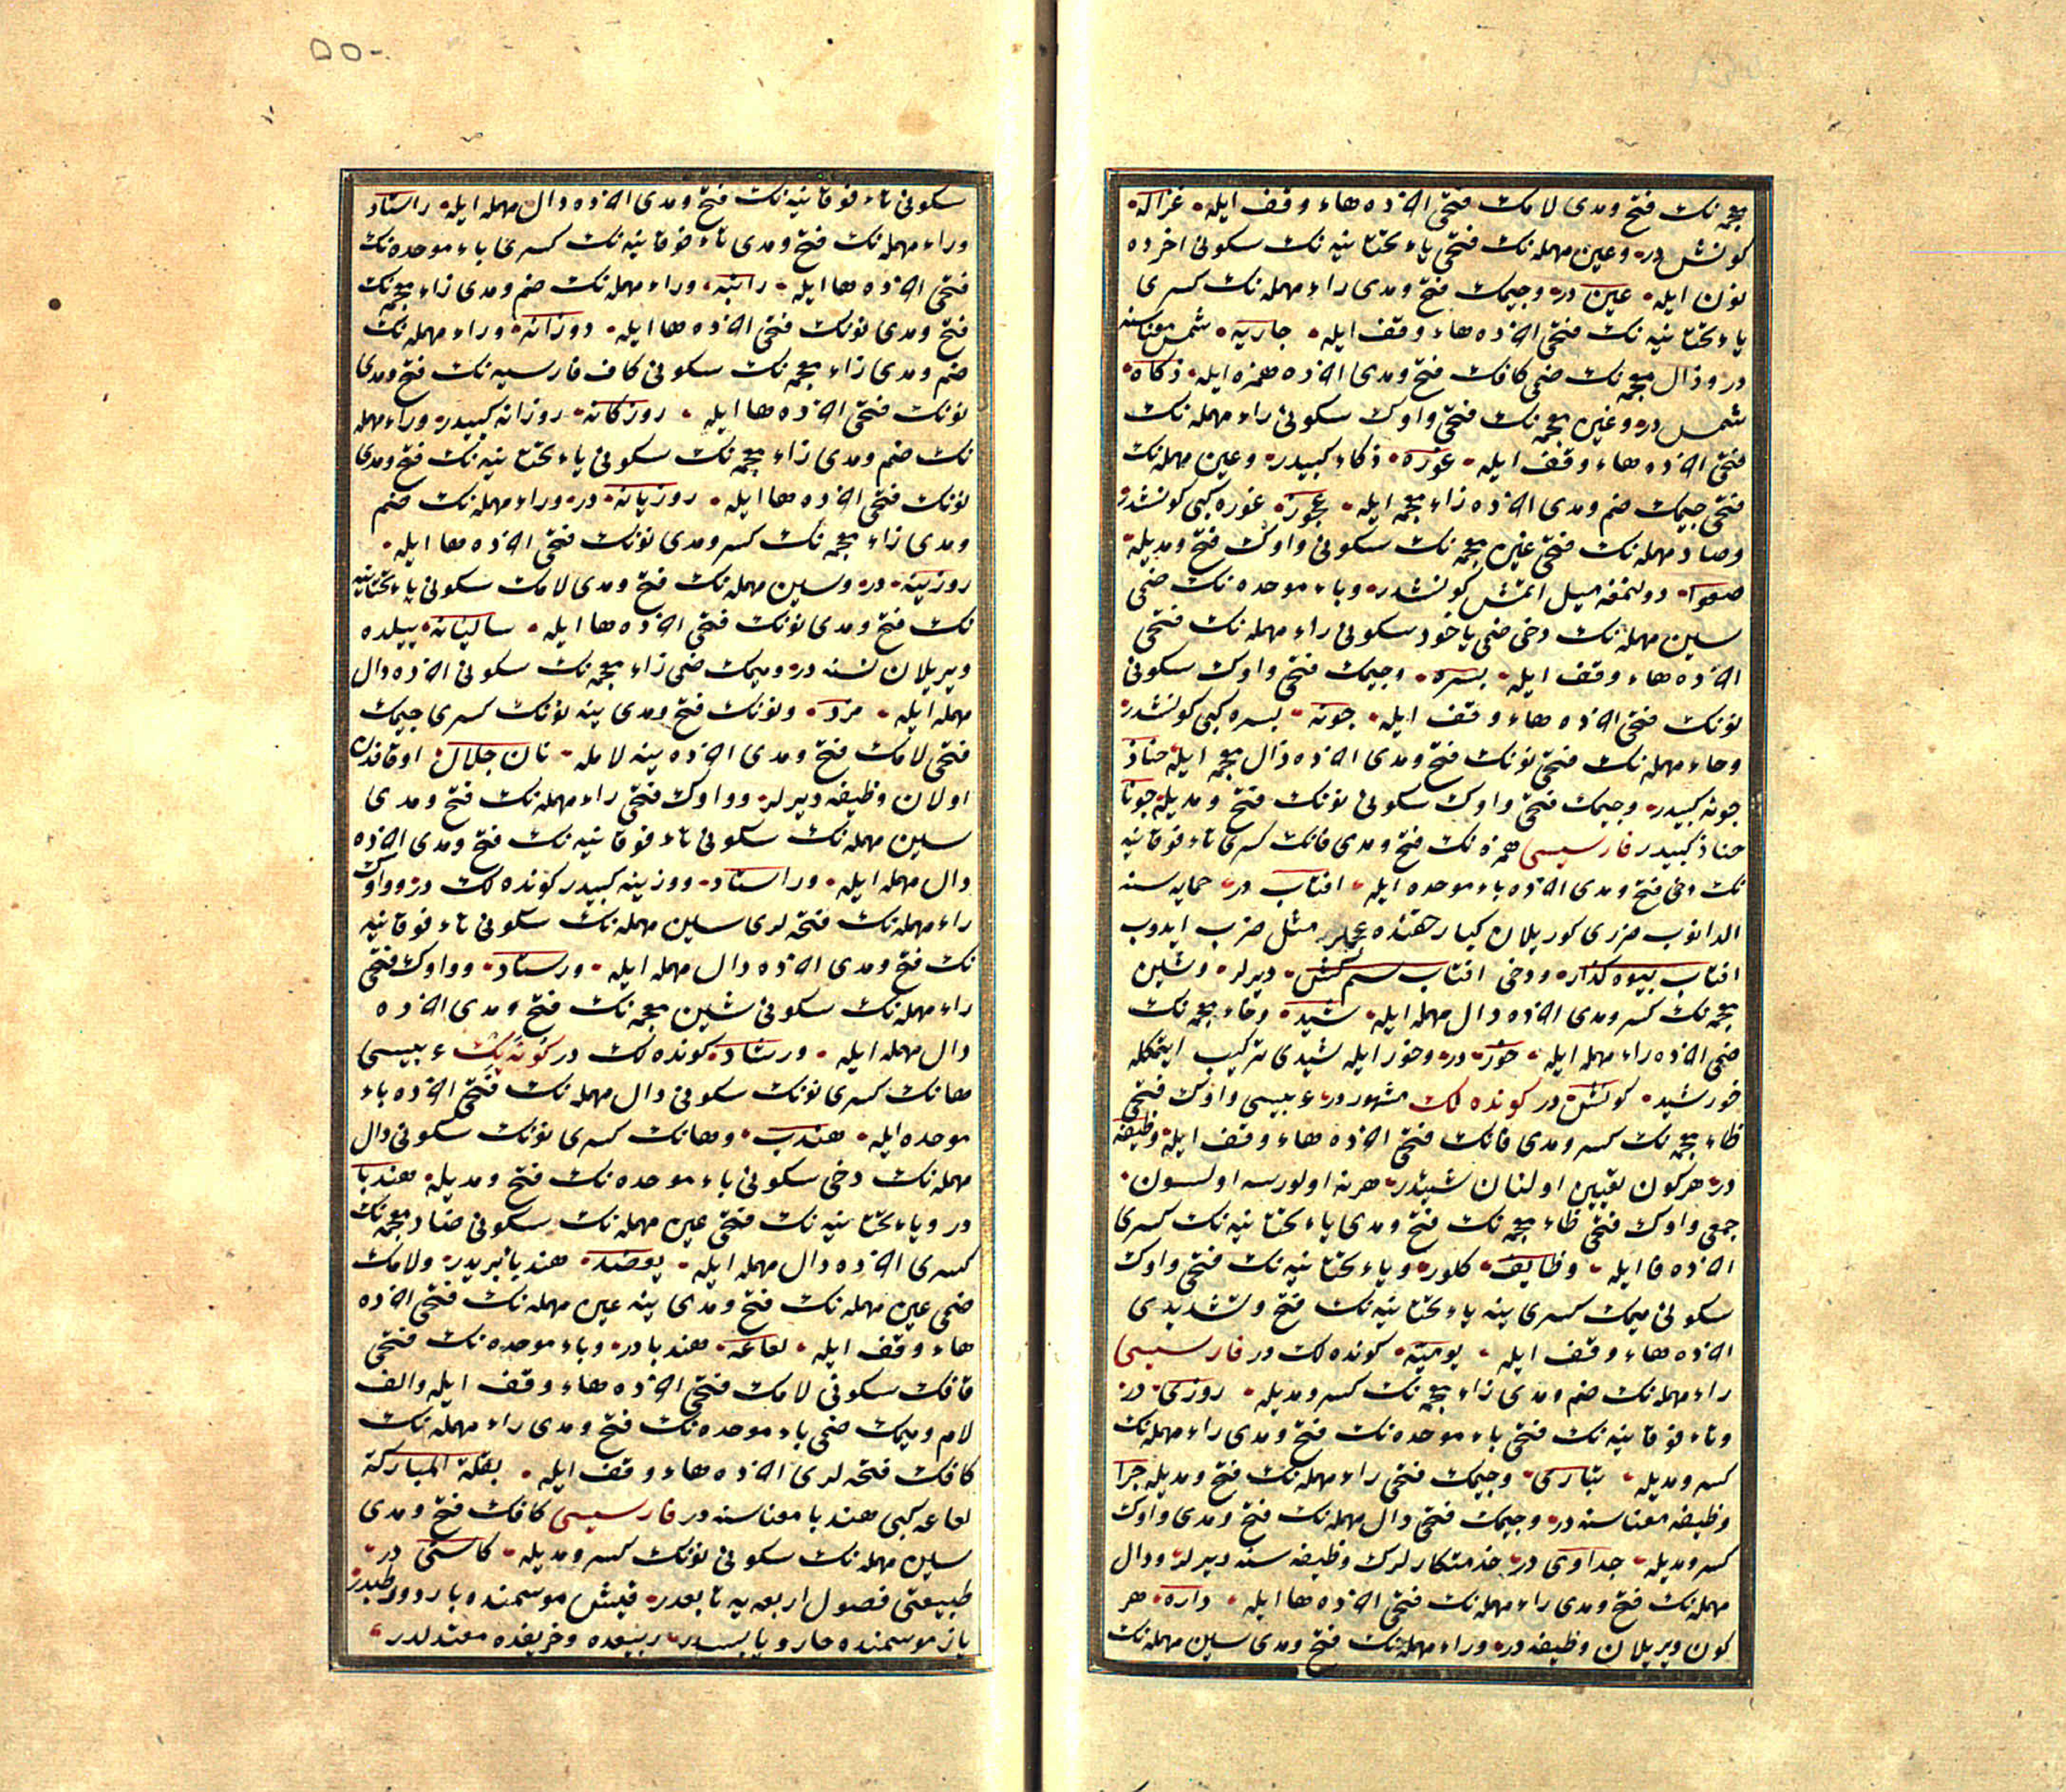 معجمه نك فتح ومدى لامك فتحى اخرده هاء وقف ايله غزاله
كونش در وعين مهمله نك فتحى ياء تحتانيه نك سكونى اخرده
نون ايله عين در وجيمك فتح ومدى راء مهمله نك كسرى
ياء تحتانيه نك فتحى اخرده هاء وقف ايله جاريه شمس معناسنه
در وذال معجمه نك ضمى كافك فتح ومدى اخرده همزه ايله ذكاء
شمس در وغين معجمه نك فتحى واوك سكونى راء مهمله نك
فتحى اخرده هاء وقف ايله غوره ذكاء كبيدر وعين مهمله نك
فتحى جيمك ضم ومدى اخرده زاء معجمه ايله عجوز غوره كبى كونشدر
وصاد مهمله نك فتحى غين معجمه نك سكونى واوك فتح ومديله
صغوا دولنمغه ميل اتمش كونشدر وباء موحده نك ضمى
سين مهمله نك دخى ضمى ياخود سكونى راء مهمله نك فتحى
اخرده هاء وقف ايله بسره وجيمك فتحى واوك سكونى
نونك فتحى اخرده هاء وقف ايله جونه بسره كبى كونشدر
وحاء مهمله نك فتحى نونك فتح ومدى اخرده ذال معجمه ايله حناذ
جونه كبيدر وجيمك فتحى واوك سكونى نونك فتح ومديله جونا
حناذ كبيدر فارسيسى همزه نك فتح ومدى فانك كسرى تاء فوقانيه
نك دخى فتح ومدى اخرده باء موحده ايله افتاب در حمايه سنه
الدانوب ضررى كوريلان كبار حقنده عجملر مثل ضرب ايدوب
افتاب بيوه كذار ودخى افتاب ديرلر وشين
معجمه نك كسر ومدى اخرده دال مهمله ايله شيد وخاء معجمه نك
ضمى اخرده راء مهمله ايله خور در وخور ايله شيدى تركيب ايتمكله
خورشيد كونش در كونده لك مشهور در عربيسى واوك فتحى
ظاء معجمه نك كسر ومدى فانك فتحى اخرده هاء وقف ايله وظيفه
در هر كون تعيين اولنان شيئدر هر نه اولورسه اولسون
جمعى واوك فتحى ظاء معجمه نك فتح ومدى ياء تحتانيه نك كسرى
اخرده فا ايله وظايف كلور وياء تحتانيه نك فتحى واوك
سكونى ميمك كسرى ينه ياء تحتانيه نك فتح وتشديدى
اخرده هاء وقف ايله يوميه كونده لك در فارسيسى
راء مهمله نك ضم ومدى زاء معجمه نك كسر ومديله روزى در
وتاء فوقانيه نك فتحى باء موحده نك فتح ومدى راء مهمله نك
كسر ومديله تبارى وجيمك فتحى راء مهمله نك فتح ومديله جرا
وظيفه معناسنه در وجيمك فتحى دال مهمله نك فتح ومدى واوك
كسر ومديله جداوى در خذمتكارلرك وظيفه سنه ديرلر ودال
مهمله نك فتح ومدى راء مهمله نك فتحى اخرده ها ايله داره هر
كون ويريلان وظيفه در وراء مهمله نك فتح ومدى سين مهمله نك
۵۵۰
سكونى تاء فوقانيه نك فتح ومدى اخرده دال مهمله ايله راستاد
وراء مهمله نك فتح ومدى تاء فوقانيه نك كسرى باء موحده نك
فتحى اخرده ها ايله راتبه وراء مهمله نك ضم ومدى زاء معجمه نك
فتح ومدى نونك فتحى اخرده ها ايله روزانه وراء مهمله نك
ضم ومدى زاء معجمه نك سكونى كاف فارسيه نك فتح ومدى
نونك فتحى اخرده ها ايله روزكانه روزانه كبيدر وراء مهمله
نك ضم ومدى زاء معجمه نك سكونى ياء تحتانيه نك فتح ومدى
نونك فتحى اخرده ها ايله روزيانه در وراء مهمله نك ضم
ومدى زاء معجمه نك كسر ومدى نونك فتحى اخرده ها ايله
روزينه در وسين مهمله نك فتح ومدى لامك سكونى ياء تحتانيه
نك فتح ومدى نونك فتحى اخرده ها ايله ساليانه ييلده
ويريلان نسنه در وميمك ضمى زاء معجمه نك سكونى اخرده دال
مهمله ايله مزد ونونك فتح ومدى ينه نونك كسرى جيمك
فتحى لامك فتح ومدى اخرده ينه لامله نان جلال اوقافدن
اولان وظيفه ديرلر وواوك فتحى راء مهمله نك فتح ومدى
سين مهمله نك سكونى تاء فوقانيه نك فتح ومدى اخرده
دال مهمله ايله وراستاد روزينه كبيدر كونده لك در وواوك
راء مهمله نك فتحه لرى سين مهمله نك سكونى تاء فوقانيه
نك فتح ومدى اخرده دال مهمله ايله ورستاد وواوك فتحى
راء مهمله نك سكونى شين معجمه نك فتح ومدى اخرده
دال مهمله ايله ورشاد كونده لك در عربيسى
هانك كسرى نونك سكونى دال مهمله نك فتحى اخرده باء
موحده ايله هندب وهانك كسرى نونك سكونى دال
مهمله نك دخى سكونى باء موحده نك فتح ومديله هندبا
در وياء تحتانيه نك فتحى عين مهمله نك سكونى ضاد معجمه نك
كسرى اخرده دال مهمله ايله يعضد هندبا بريدر ولامك
ضمى عين مهمله نك فتح ومدى ينه عين مهمله نك فتحى اخرده
هاء وقف ايله لعاعه هندبا در وباء موحده نك فتحى
قافك سكونى لامك فتحى اخرده هاء وقف ايله والف
لام وميمك ضمى باء موحده نك فتح ومدى راء مهمله نك
كافك فتحه لرى اخرده هاء وقف ايله بقلة المباركة
لعاعه كبى هندبا معناسنه در فارسيسى كافك فتح ومدى
سين مهمله نك سكونى نونك كسر ومديله كاسنى در
طبيعتى فصول اربعه يه تابعدر قيش موسمنده بارد ورطبدر
ياز موسمنده حار ويابسدر ربيعده وخريفده معتدلدر